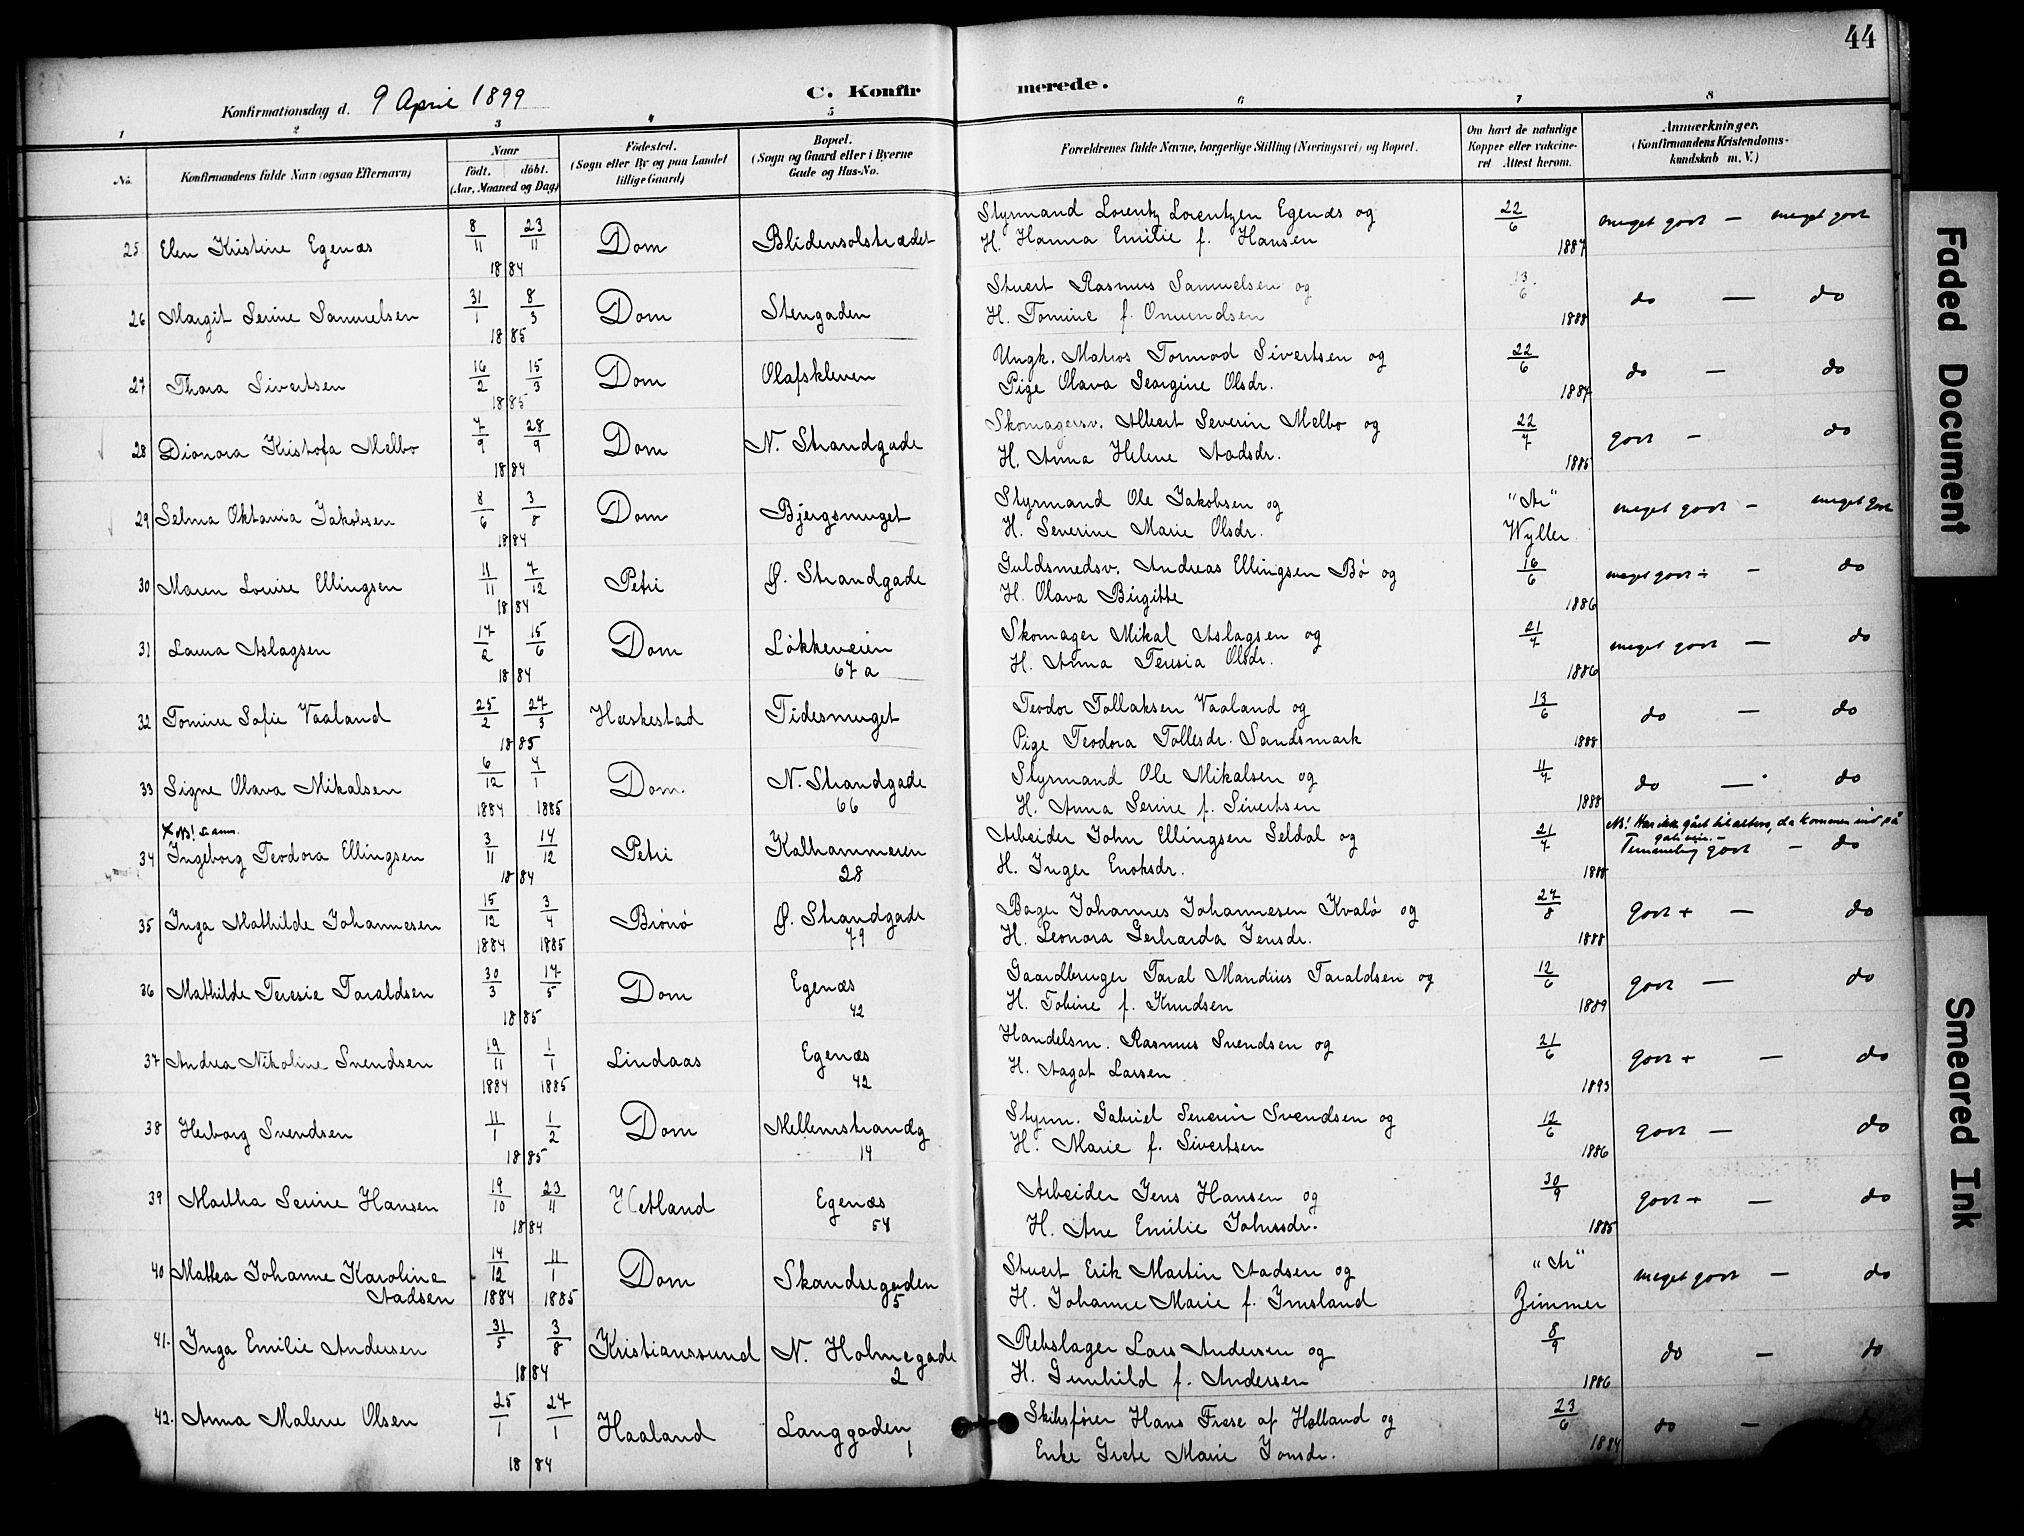 44
Konfirmationsdag d. 9 April 1899
C. Konfirmerede.
1 2 3 4 5 6 7 8
No.
Konfirmandens fulde Navn (ogsaa Efternavn)
Naar
født. døbt.
(Aar, Maaned og Dag)
Fødested.
(Sogn eller By og paa Landet
tillige Gaard)
Bopæl.
(Sogn og Gaard eller i Byerne
Gade og Hus-No.
Forældrenes fulde Navne, borgerlige Stilling (Næringsvei) og Bopæl.
Om havt de naturlige
Kopper eller vakcine-
ret Attest herom.
Anmærkninger.
(Konfirmandens Kristendoms-
kundskab m. V.)
25 Elen Kristine Egenæs 8/11 23/11 1884 Dom Blidensolstrædet
Styrmand Lorentz Lorentzen Egenæs og
H. Hanna Emilie f. Hansen 22/6 1887 meget godt — meget godt
26 Margit Serine Samuelsen 31/1 8/3 1885 Dom Stengaden
Stuert Rasmus Samuelsen og
H. Tomine f. Omundsen 13/6 1888 do — do
27 Thora Sivertsen 16/2 15/3 1885 Dom Olafskleven
Ungk. Matros Tormod Sivertsen og
Pige Olava Georgine Olsdr. 22/6 1887 do — do
28 Dionora Kristofa Melbo 7/9 28/9 1884 Dom N. Strandgade
Skomagersv. Albert Severin Melbo og
H. Anna Helene Aadsdr. 22/7 1885 godt — do
29 Selma Oktavia Jakobsen 8/6 3/8 1884 Dom Bjergsmuget
Styrmand Ole Jakobsen og
H. Severine Marie Olsdr. "Atr" Wyller meget godt — meget godt
30 Maren Louise Ellingsen 11/11 7/12 1884 Petri Ø. Strandgade
Guldsmedsv. Andreas Ellingsen Bø og
H. Olava Birgitte 16/6 1886 meget godt ÷ — do
31 Laura Aslagsen 17/2 15/6 1884 Dom Løkkeveien
67 a
Skomager Mikal Aslagsen og
H. Anna Teresia Olsdr. 21/7 1886 meget godt — do
32 Tomine Sofie Vaaland 25/2 27/3 1885 Heskestad Tidesmuget
Teodor Tollaksen Vaaland og
Pige Teodora Tollesdr. Sandsmark 13/6 1888 do — do
33 Signe Olava Mikalsen 6/12 1884 4/1 1885 Dom. N. Strandgade
66
Styrmand Ole Mikalsen og
H. Anna Serine f. Sivertsen 11/7 1888 do — do
34 Ingeborg Teodora Ellingsen 3/11 14/12 1884 Petri Kalhammeren
28
Arbeider John Ellingsen Seldal og
H. Inger Enoksdr. 21/7 1888 godt — do
35 Inga Mathilde Johannesen 15/12 1884 3/4 1885 Brønø Ø. Strandgade
79
Bager Johannes Johannesen Kvalø og
H. Leonora Gerharda Jensdr. 27/8 1888 godt + — do
36 Mathilde Teresie Taraldsen 30/3 17/5 1885 Dom Egenæs
42
Gaardbruger Taral Mandius Taraldsen og
H. Tobine f. Knudsen 12/6 1889 godt — do
37 Andrea Nikoline Svendsen 19/11 1884 1/1 1885 Lindaas Egenæs
42
Handelsm. Rasmus Svendsen og
H. Aagot Larsen 21/6 1893 godt + — do
38 Herborg Svendsen 11/1 1/2 1885 Dom Mellemstrandg
14
Styrm. Gabriel Severin Svendsen og
H. Marie f. Sivertsen 12/6 1886 godt — do
39 Martha Serine Hansen 19/10 23/11 1884 Hetland Egenæs
54
Arbeider Jens Hansen og
H. Ane Emilie Johnsdr. 30/9 1885 godt + — do
40 Mattea Johanne Karoline
Aadsen 14/12 1884 11/1 1885 Dom Skandsegaden
5
Stuert Erik Martin Aadsen og
H. Johanne Marie f. Imsland "Atr" Zimmer meget godt — do
41. Inga Emilie Andersen 31/5 3/8 1884 Kristianssund N. Holmegade
2
Rebslager Lars Andersen og
H. Gunhild f. Andersen 8/9 1886 do — do
42. Anna Malene Olsen 25/1 27/1 1884 Haaland Langgaden
1
Skibsfører Hans Frese af Holland og
Enke Grete Marie Jonsdr. 23/6 1884 do —
Faded Document
Smeared Ink